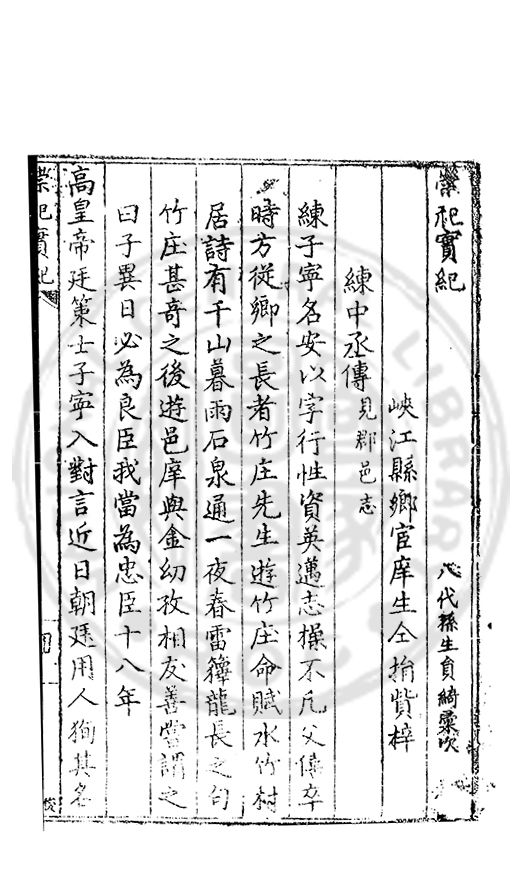 崇祀實紀
八代孫生員綺彙次
峽江縣鄉宦庠生仝捐貲梓
練中丞傳 見郡邑志
練子寧名安以字行性資英邁志操不凡父偉卒
時方從鄉之長者竹庄先生遊竹庄命賦水竹村
居詩有千山暮雨石泉通一夜春雷籜龍長之句
竹庄甚奇之後遊邑庠與金幼孜相友善嘗謂之
曰子異日必為良臣我當為忠臣十八年
高皇帝廷策士子寧入對言近日朝廷用人狥其名
崇祀實紀